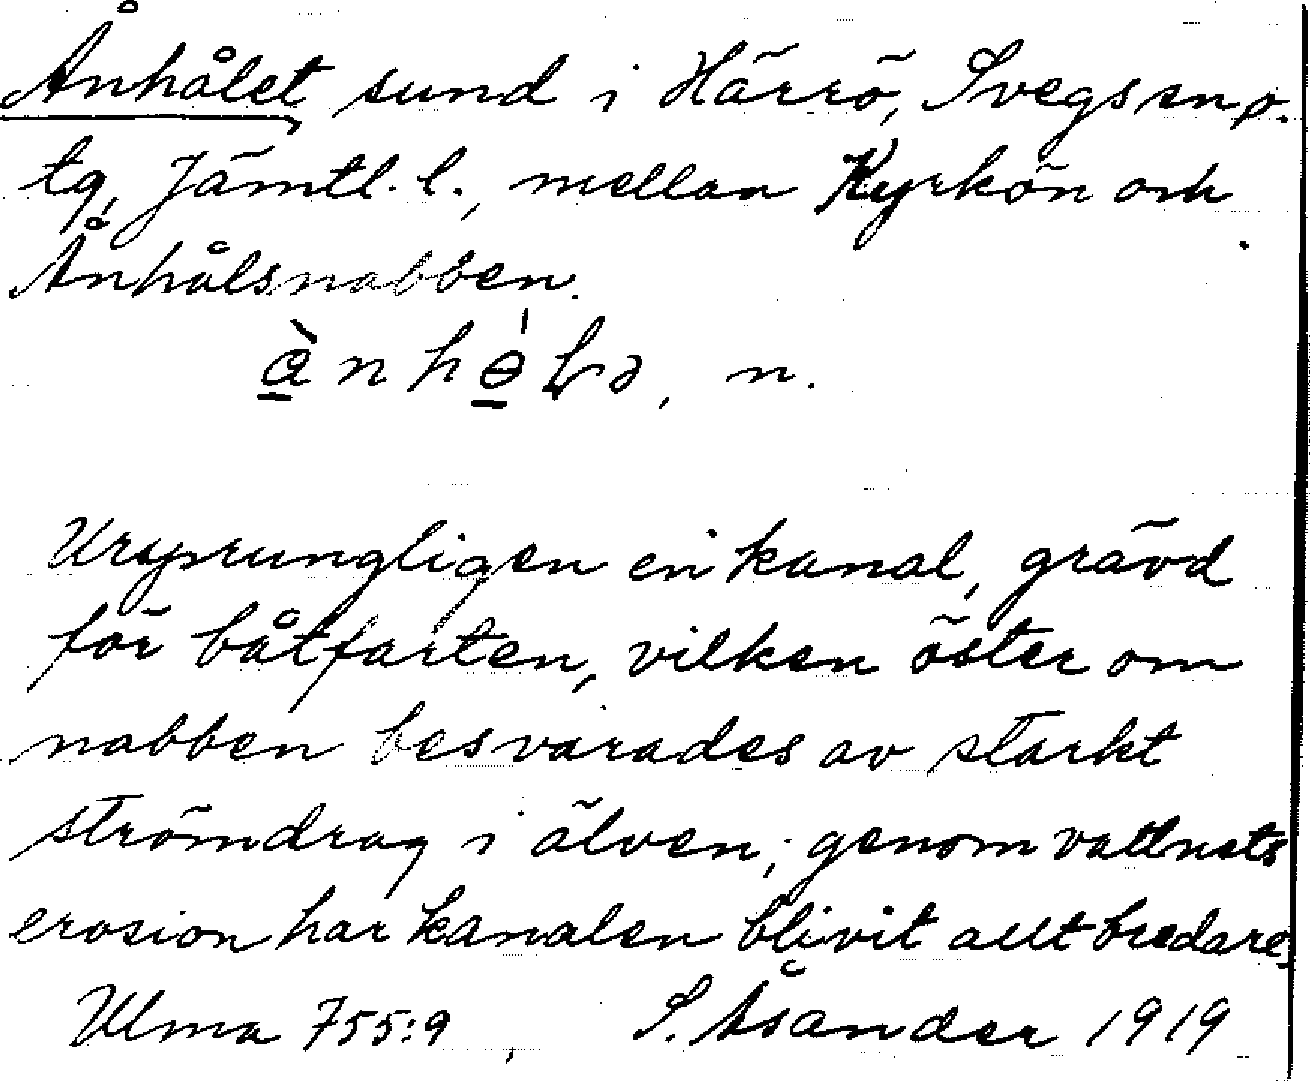 Ånhålet, sund i Härrö, Svegs sn o.
tg, Jämtl. l., mellan Kyrkön och
Ånhålsnabben.
n.
Ursprungligen en kanal, grävd
för båtfarten, vilken öster om
nabben besvärades av starkt
strömdrag i älven; genom vattnets
erosion har kanalen blivit allt bredare.
Ulma 755:9 S. Åsander 1919